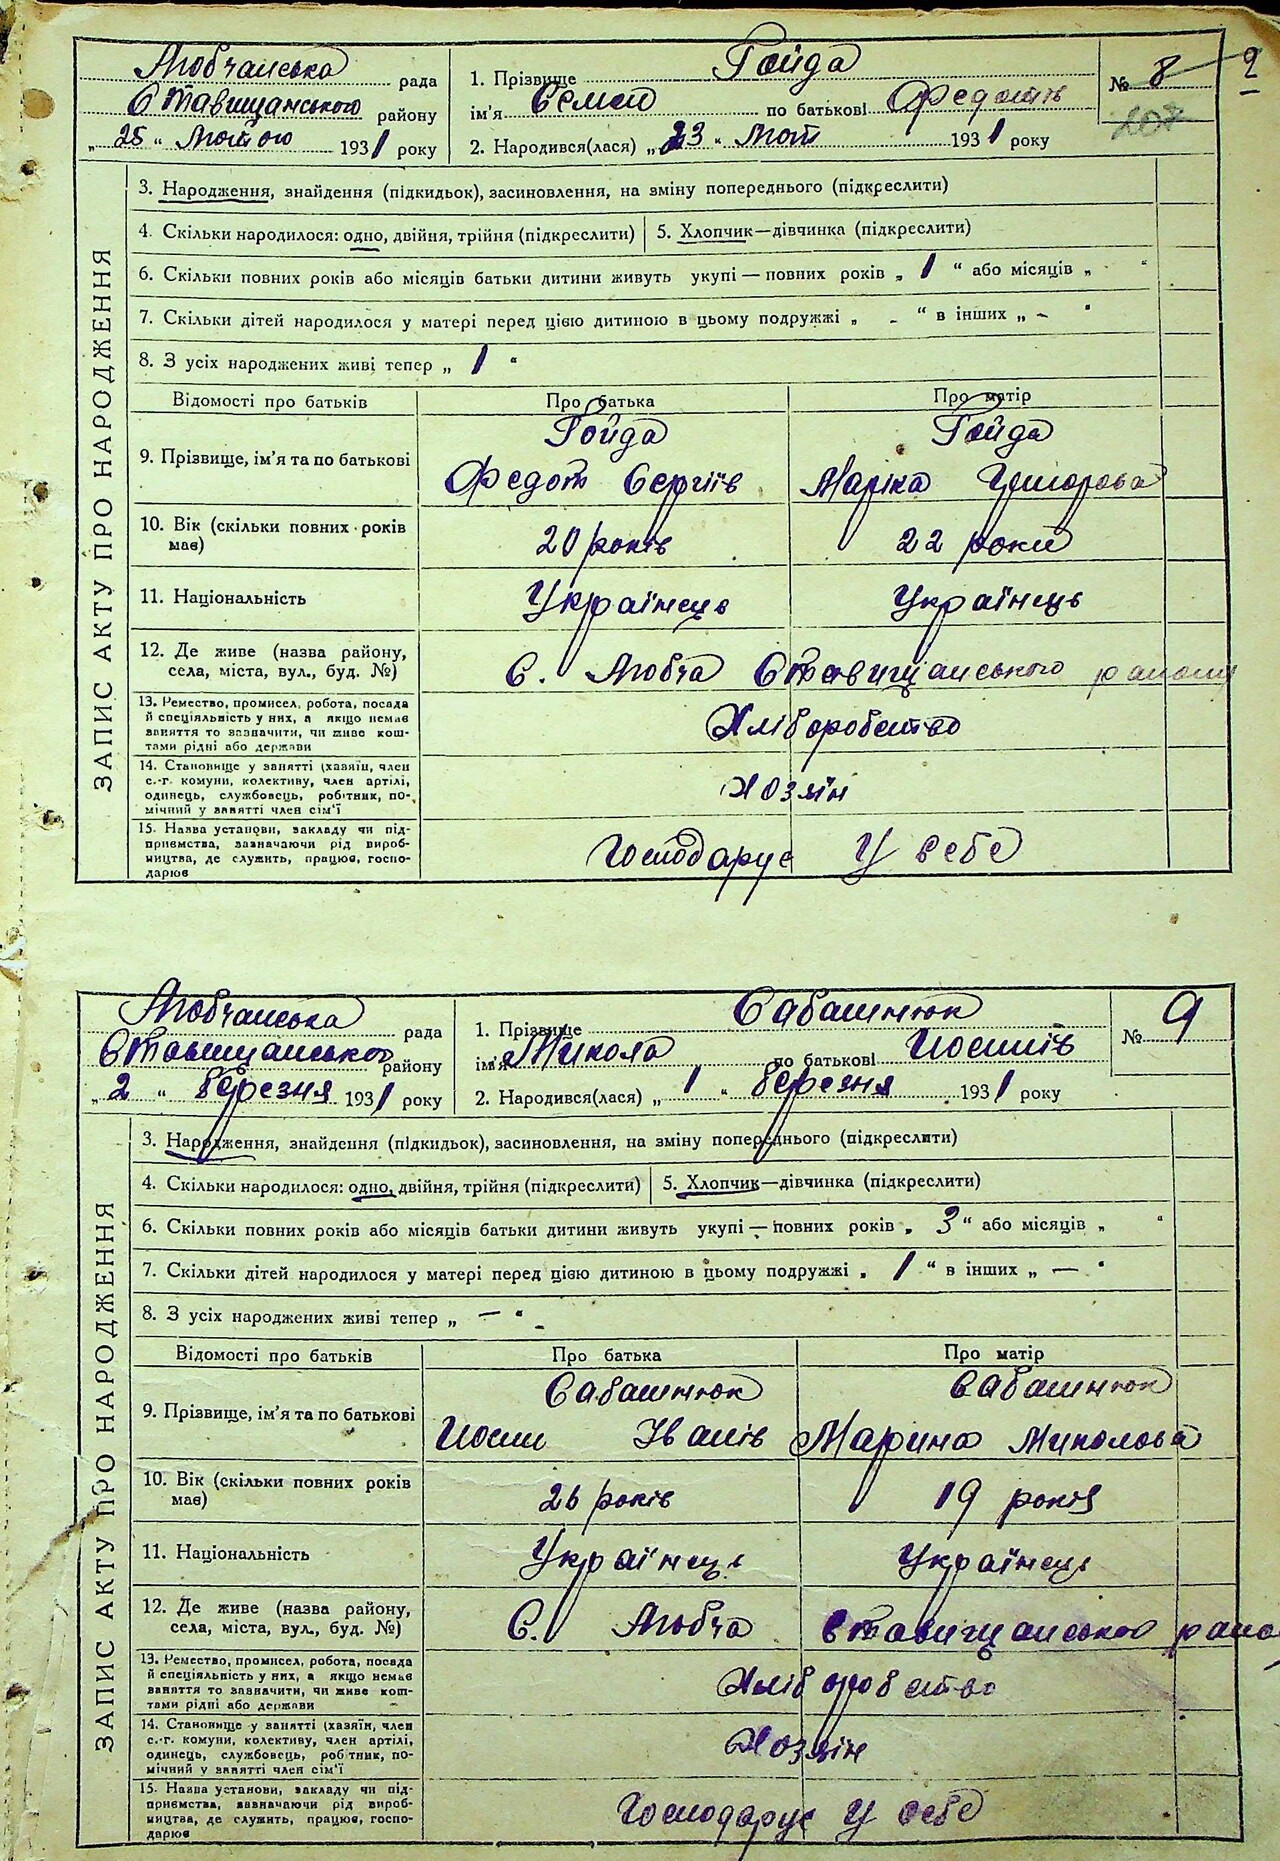 2
Любчанська рада
Ставищанського району
„ 25 “ Лютого 1931 року
1. Прізвище Гойда
ім'я Семен по батькові Федотів
2. Народився(лася) „ 23 “ Лют 1931 року
№ 8
207
ЗАПИС АКТУ ПРО НАРОДЖЕННЯ
3. Народження, знайдення (підкидьок), засиновлення, на зміну попереднього (підкреслити)
4. Скільки народилося: одно, двійня, трійня (підкреслити) 5. Хлопчик—дівчинка (підкреслити)
6. Скільки повних років або місяців батьки дитини живуть укупі — повних років „ 1 “ або місяців „ “
7. Скільки дітей народилося у матері перед цією дитиною в цьому подружжі „ - “ в інших „ - “
8. З усіх народжених живі тепер „ 1 “
Відомості про батьків Про батька Про матір
Гойда Гойда
9. Прізвище, ім'я та по батькові Федот Сергіїв Маріка
10. Вік (скільки повних років має) 20 років 22 роки
11. Національність Українець Українець
12. Де живе (назва району, села, міста, вул., буд. №) С. Любча Ставищанського району
13. Ремество, промисел, робота, посада
й спеціяльність у них, а якщо немає
заняття то зазначити, чи живе кош-
тами рідні або держави
Хліборобство
14. Становище у занятті (хазяїн, член
с.-г. комуни, колективу, член артілі,
одинець, службовець, робітник, по-
мічний у занятті член сім'ї
Хозяїн
15. Назва установи, закладу чи під-
приємства, зазначаючи рід вироб-
ництва, де служить, працює, госпо-
дарює
Господарує У себе
Любчанська рада
Ставищанського району
„ 2 “ березня 1931 року
1. Прізвище Сабашнюк
ім'я Микола по батькові Йосипів
2. Народився(лася) „ 1 “ березня 1931 року
№ 9
ЗАПИС АКТУ ПРО НАРОДЖЕННЯ
3. Народження, знайдення (підкидьок), засиновлення, на зміну попереднього (підкреслити)
4. Скільки народилося: одно, двійня, трійня (підкреслити) 5. Хлопчик—дівчинка (підкреслити)
6. Скільки повних років або місяців батьки дитини живуть укупі — повних років „ 3 “ або місяців „ “
7. Скільки дітей народилося у матері перед цією дитиною в цьому подружжі „ 1 “ в інших „ — “
8. З усіх народжених живі тепер „ — “
Відомості про батьків Про батька Про матір
Сабашнюк Сабашнюк
9. Прізвище, ім'я та по батькові Йосип Іванів Марина Миколова
10. Вік (скільки повних років має) 26 років 19 років
11. Національність Українець Українець
12. Де живе (назва району, села, міста, вул., буд. №) С. Любча Ставищанського райо
13. Ремество, промисел, робота, посада
й спеціяльність у них, а якщо немає
заняття то зазначити, чи живе кош-
тами рідні або держави
Хліборобство
14. Становище у занятті (хазяїн, член
с.-г. комуни, колективу, член артілі,
одинець, службовець, робітник, по-
мічний у занятті член сім'ї
Хозяїн
15. Назва установи, закладу чи під-
приємства, зазначаючи рід вироб-
ництва, де служить, працює, госпо-
дарює
Господарує У себе